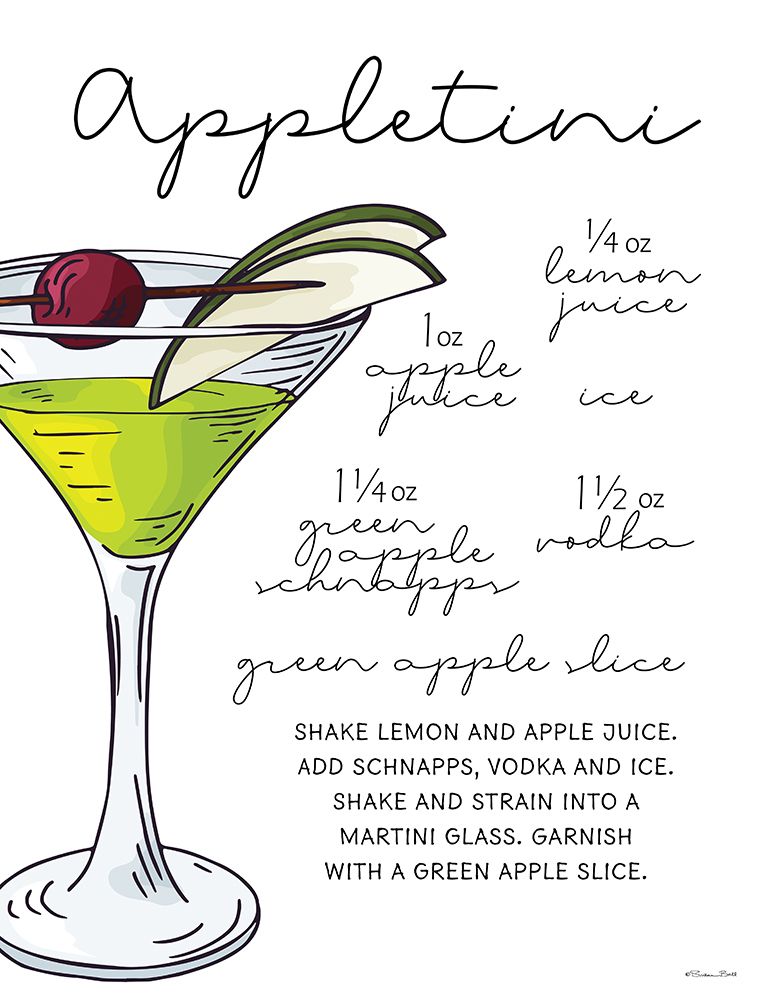 Appletini
1/4 oz
lemon
juice
1 oz
apple
juice
ice
1 1/4 oz
green
apple
schnapps
1 1/2 oz
vodka
green apple slice
SHAKE LEMON AND APPLE JUICE.
ADD SCHNAPPS, VODKA AND ICE.
SHAKE AND STRAIN INTO A
MARTINI GLASS. GARNISH
WITH A GREEN APPLE SLICE.
©Susan Ball